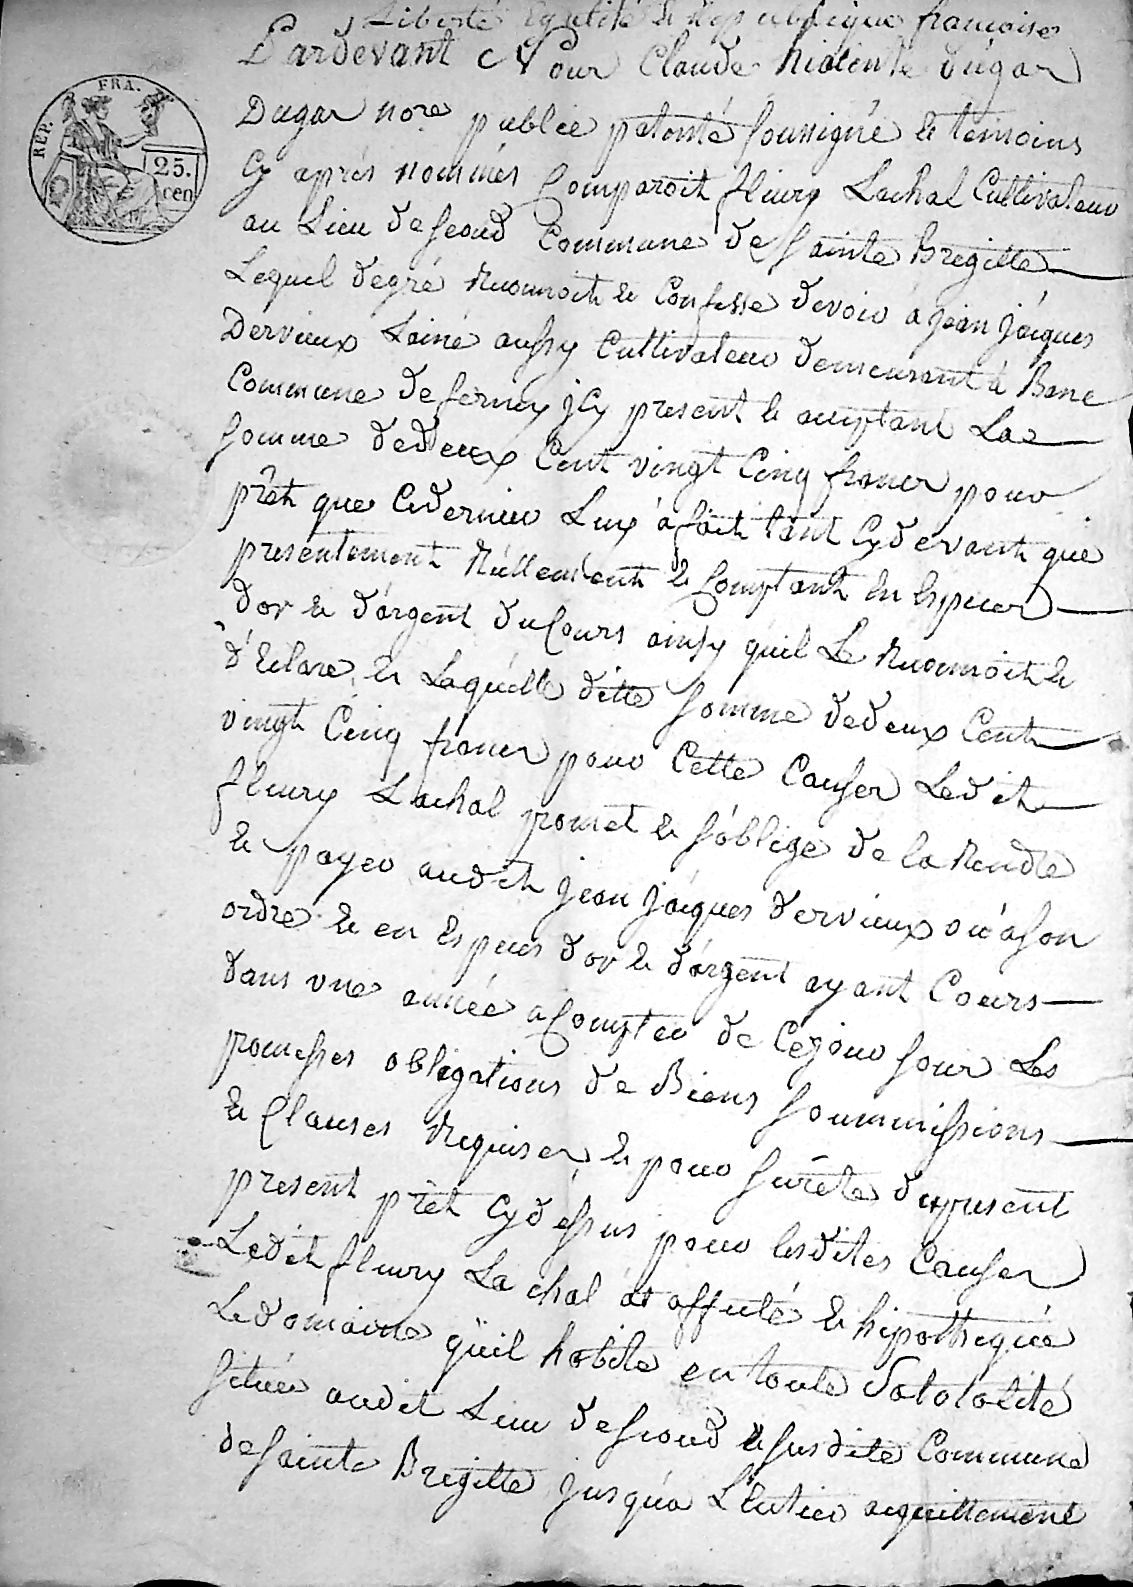 Liberté Egalité Le Republique francoise
Pardevant Nous Claude Dugas
Dugas nore public patenté soussigné et temoins
Cy après nommés Comparoit fleury Lachal Cultivateur
au Lieu de seoud Commune de sainte Bregitte
Lequel degré Reconnoit et Confesse devoir à jean jácques
Dervieux Lainé aussy Cultivateur demeurant à Bane
Commune de fernay jcy present et acceptant La
somme dedeux Cent vingt Cinq francs pour
prêt que Cedernier Luy à fait tant Cydevant que
presentement Réllement et Comptant En Espèces
dor et dárgent duCours ainsy quíl Le Reconnoit et
déclare, et Laquélle ditte somme dedeux Cent
vingt Cinq francs pour Cette Causes Ledit
fleury Lachal promet et sóblige de la Rendre
et payer audit jean jácques dervieux ou àson
ordre et en Espèces dor et dárgent ayant Cours
dans une année aCompter de Cejour sour Les
promesses obligations de Biens soummissions
et Clauses Requises, et pour sûreté dupresent
present prêt Cydéssus pour lesdites Causes
Ledit fleury La chal át affecté et hipothequé
Ledomaine quíl habite en toute Satotalité
située audit Lieu deseoud et susdite Commune
desainte Bregitte jusquà Lentier acquittement
REP. FRA.
25.
cen